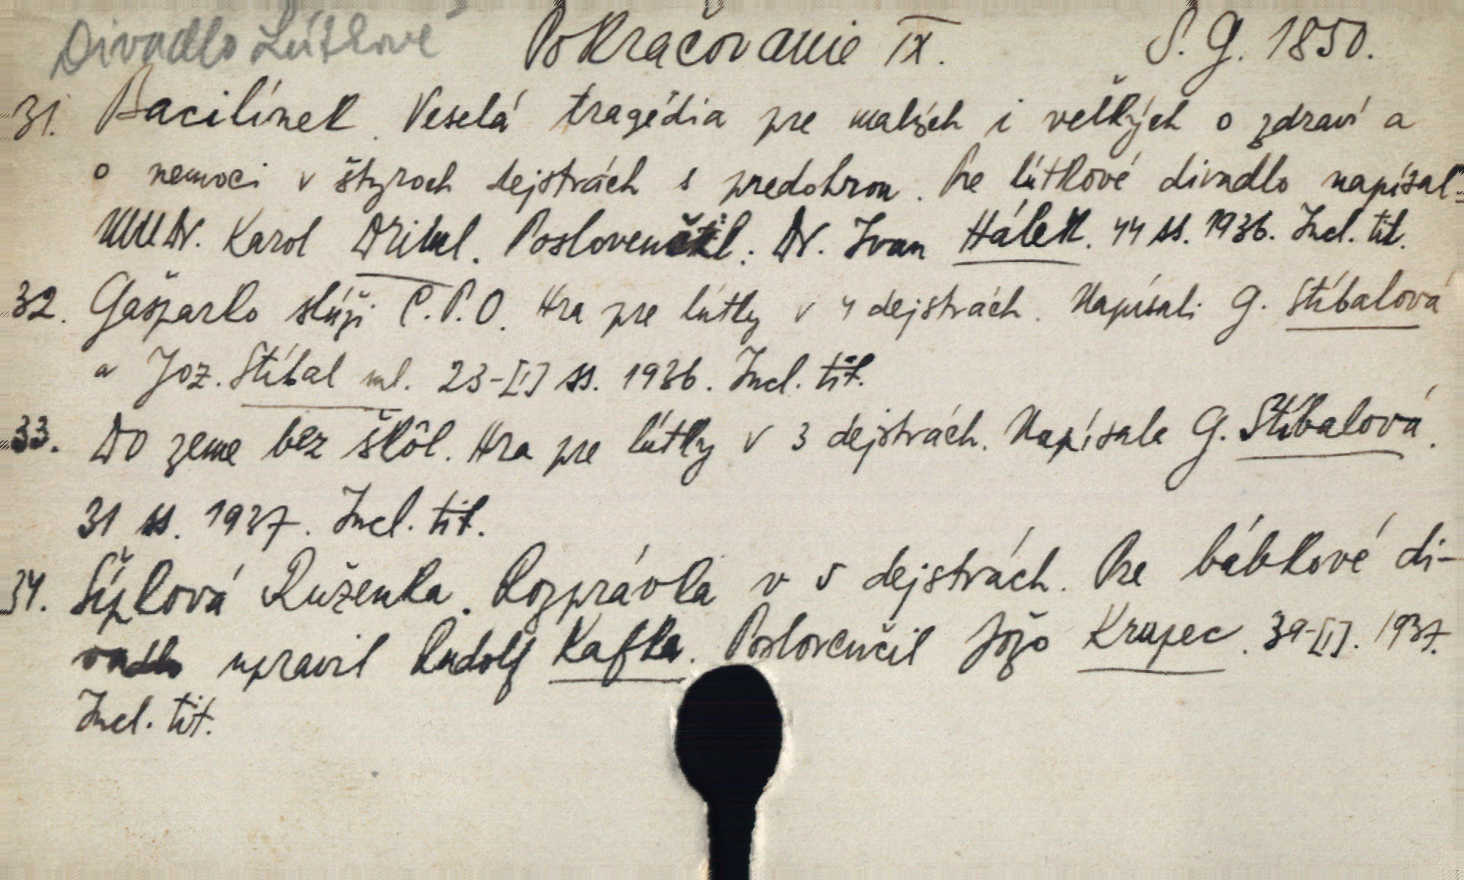 Divadlo Lútkové Pokračovanie IX. S. G. 1850.
31. Bacilínek. Veselá tragédia pre malých i veľkých o zdraví a
o nemoci v štyroch dejstvách s predohrou. Pre lútkové divadlo napísal
MUDr. Karol Driml. Poslovenčil: Dr. Ivan Hálek. 44 ss. 1936. Incl. tit.
32. Gašparko slúži C.P.O. Hra pre lútky v 4 dejstvách. Napísali G. Stíbalová
a Joz. Stíbal ml. 23-[1] ss. 1936. Incl. tit.
33. Do zeme bez škôl. Hra pre lútky v 3 dejstvách. Napísala G. Stíbalová.
31 ss. 1937. Incl. tit.
34. Šípková Ruženka. Rozprávka v 5 dejstvách. Pre bábkové di-
vadlo upravil Rudolf Kafka. Poslovenčil Jožo Krupec. 39-[1]. 1937.
Incl. tit.